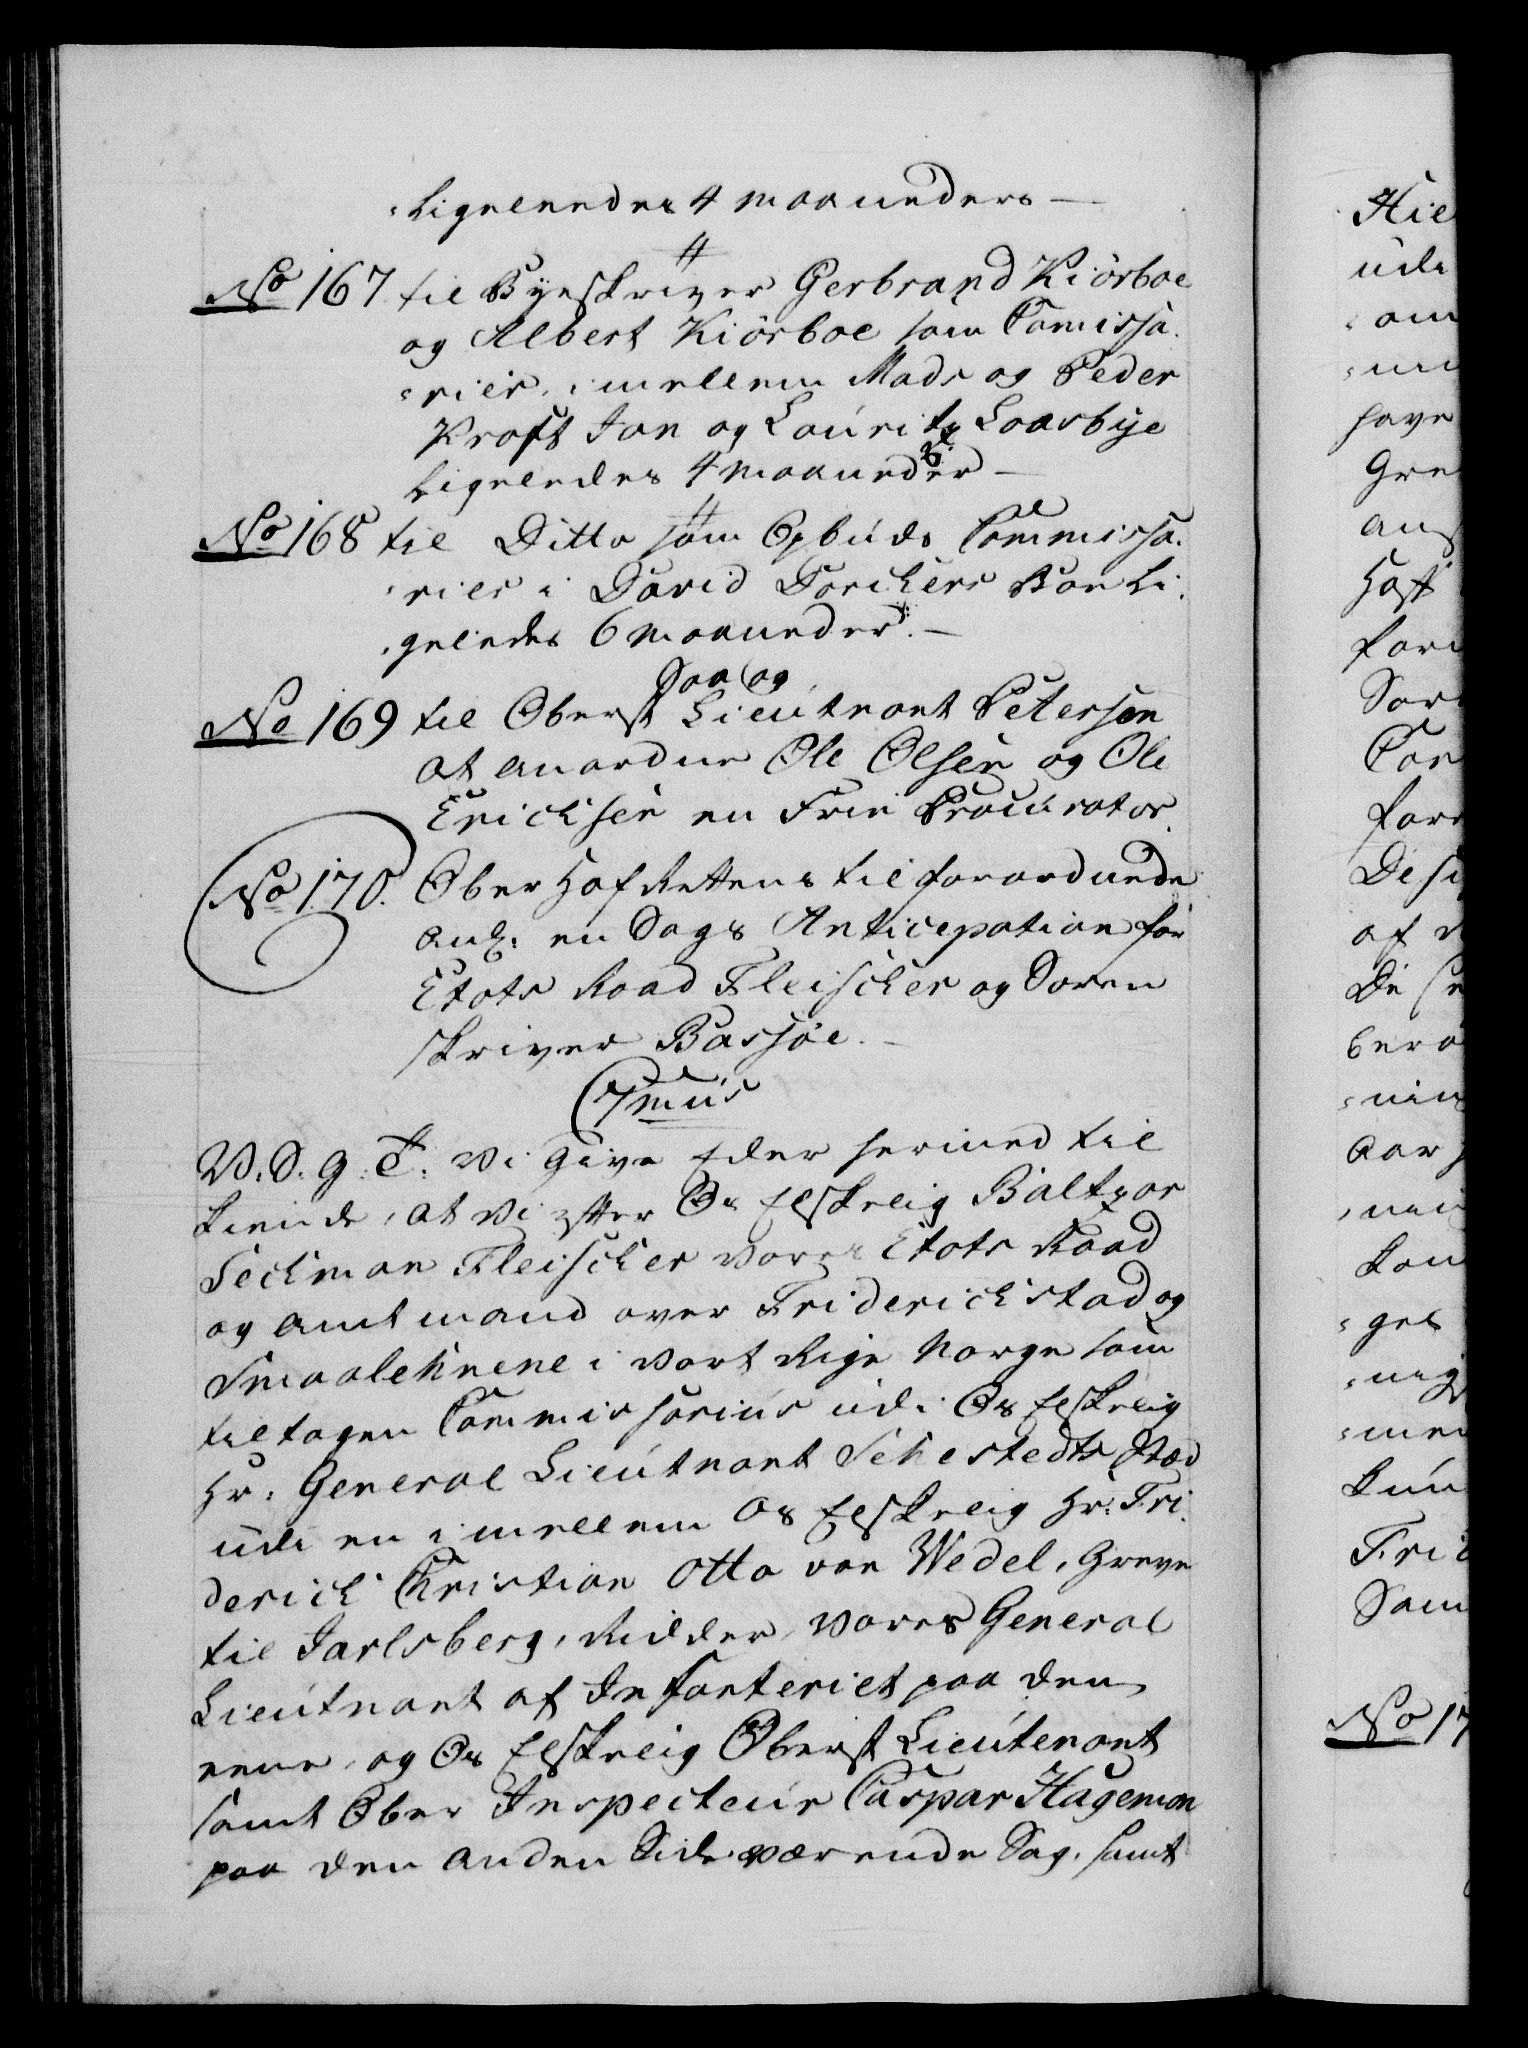 :ligeleedes 4 maaneders —
No 167 til Byeskriver Gerbrand Kiörboe
og Albert Kiörboe som Comissa-
:rier, imellem Mads og Peder
Kraft Jan og Lauritz Laarbye
Ligeledes 4 maaneder —
No 168 til Ditto som Opbuds Commissa-
:rier i David Torchers Boe li-
:geledes 6 maaneder. —
Saa og
No 169 til Oberst Lieutnant Petersen
at anordne Ole Olsen og Ole
Erichsen en Frie Procurator.
No 170. Ober Hof Rettens tilforordnede
anl: en Sags Anticipation for
Etats Raad Fleischer og Soren
skriver Bassøe. —
7mus
V. S. G. T. Vi give Eder hermed til
kiende, at Vi efter Os Elskelig Baltzar
Sechman Fleischer vores Etats Raad
og Amtmand over Friderichstad og
Smaalehnene i vort Rige Norge som
tiltagen Commissarius udi Os Elskelig
Hr: General Lieutnant Sehestedts Sted
udi en imellem Os Elskelig Hr: Fri-
derich Christian Otto von Wedel, Greve
til Jarlsberg, Ridder, vores General
Lieutnant af Infanteriet paa den
eene, og Os Elskelig Oberst Lieutenant
samt Ober Inspecteur Caspar Hageman
paa den anden Side værende Sag, samt
Hie
udi
om
have
Gre
ans
Hoff
for
Sor
Com
forr
De si
af
De se
bero
:nin
Aar
kon
:gel
:men
kun
Frid
Sam
No 17